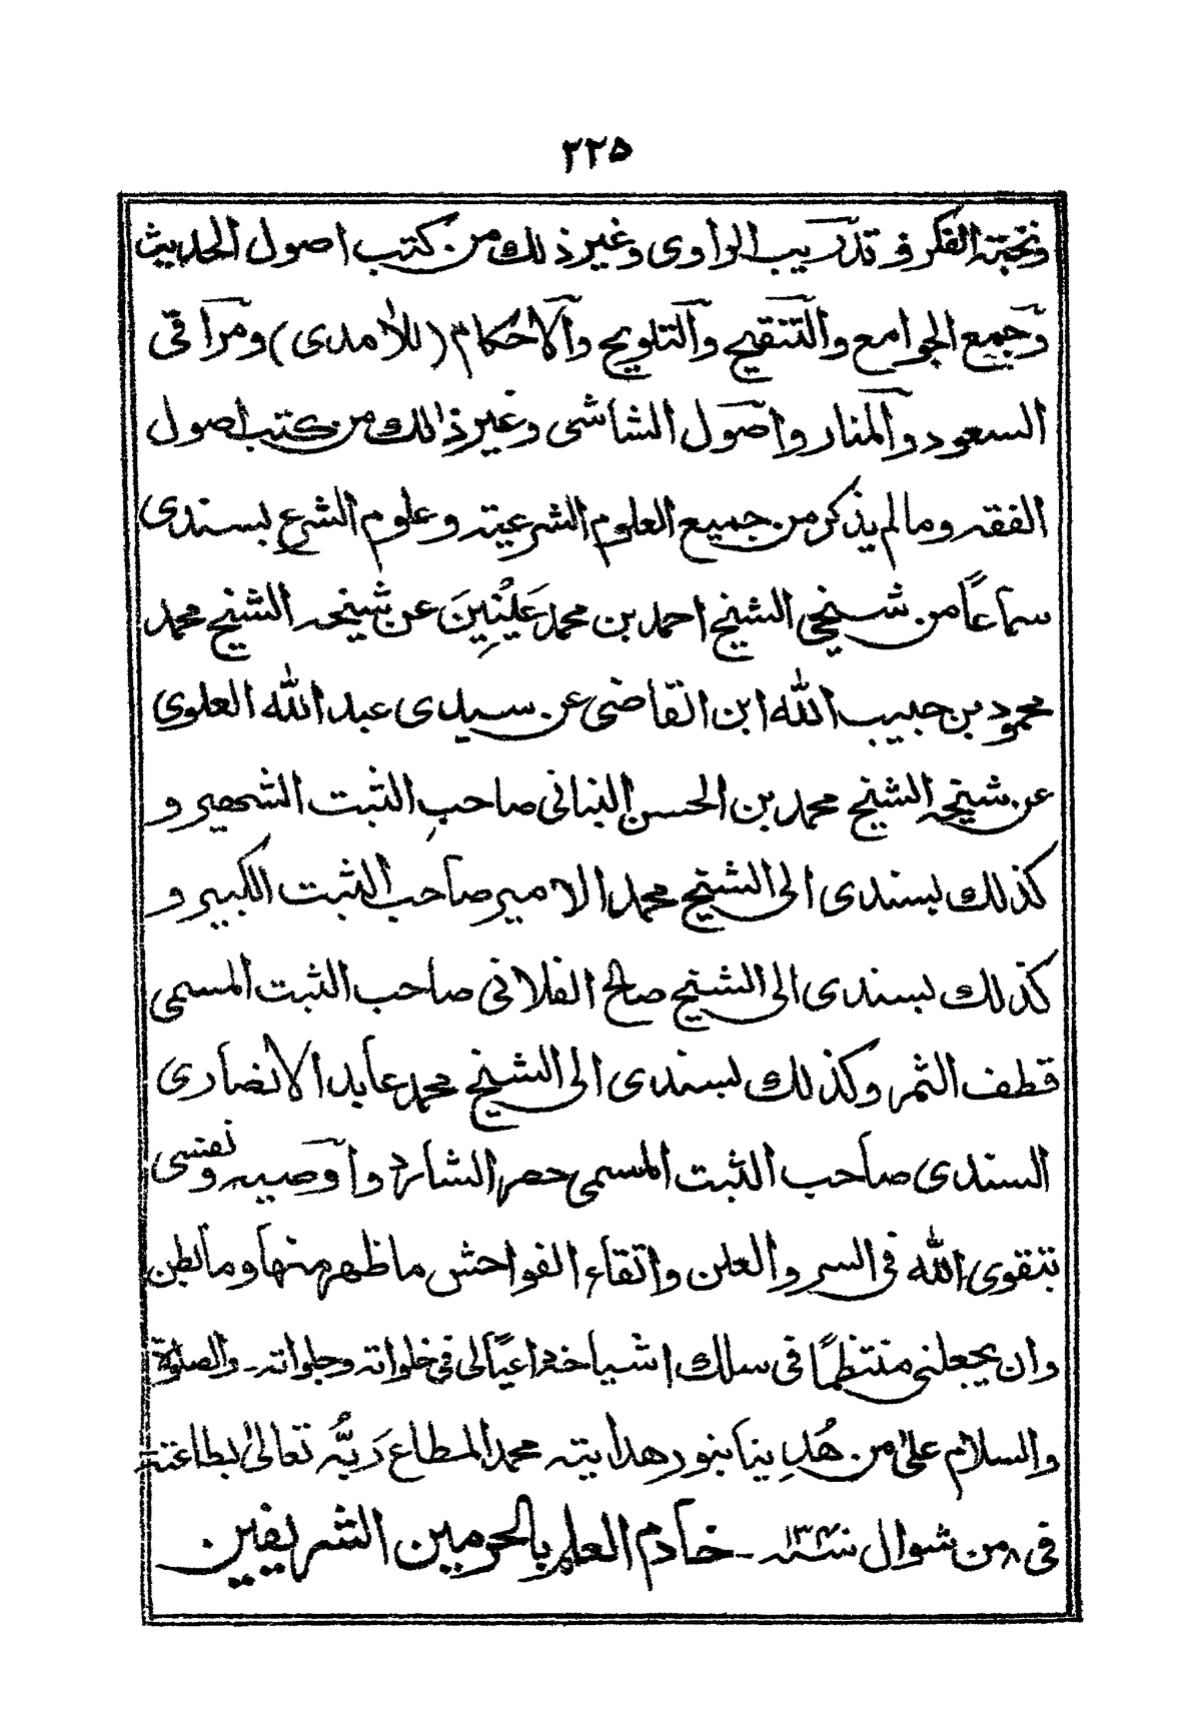 ٢٢٥
ونخبة الفكر و تدريب الراوى وغير ذلك من كتب اصول الحديث
وجميع الجوامع والتنقيح والتلويح والاحكام (للأمدى) ومراقى
السعود والمنار واصول الشاشى وغير ذالك من كتب اصول
الفقه وما لم يذكر من جميع العلوم الشرعية وعلوم الشرع بسندى
سماعاً من شيخى الشيخ احمد بن محمد عَيْنِينَ عن شيخه الشيخ محمد
محمود بن حبيب الله ابن القاضى عن سيدى عبد الله العلوى
عن شيخه الشيخ محمد بن الحسن البنانى صاحب الثبت الشهير و
كذلك بسندى الى الشيخ محمد الامير صاحب الثبت الكبير و
كذلك بسندى الى الشيخ صالح الفلانى صاحب الثبت المسمى
قطف الثمر وكذلك بسندى الى الشيخ محمد عابد الانصارى
السندى صاحب الثبت المسمى حصر الشارد وأوصيه ونفسى
بتقوى الله فى السر والعلن واتقاء الفواحش ما ظهر منها وما بطن
وان يجعلنى منتظماً فى سلك اشياخه داعياً لى فى خلواته وجلواته - والصلوة
والسلام على من هُدِينا بنور هدايته محمد المطاع رَبُّه تعالى بطاعته
فى ٨ من شوال سنه ١٣٤٠ - خادم العلم بالحرمين الشريفين.